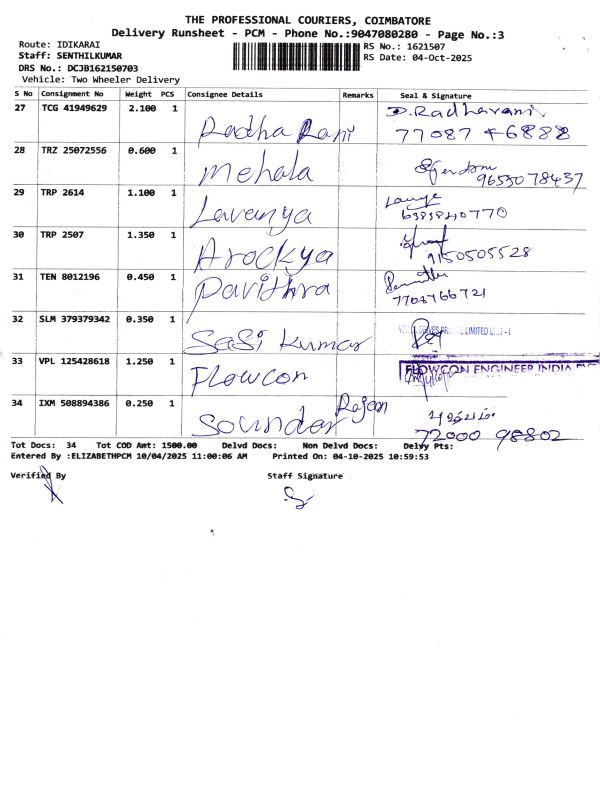 THE PROFESSIONAL COURIERS, COIMBATORE
Delivery Runsheet - PCM - Phone No.:9047080280 - Page No.:3
Route: IDIKARAI
Staff: SENTHILKUMAR
RS No.: 1621507
RS Date: 04-Oct-2025
DRS No.: DCJB162150703
Vehicle: Two Wheeler Delivery
S No Consignment No Weight PCS Consignee Details Remarks Seal & Signature
27 TCG 41949629 2.100 1 Radha Rani D.Radharani
77087 46888
28 TRZ 25072556 0.600 1 Mehala
9655078437
29 TRP 2614 1.100 1 Lavanya
6383840770
30 TRP 2507 1.350 1 Arockya
9150505528
31 TEN 8012196 0.450 1 Pavithra
7708766721
32 SLM 379379342 0.350 1 Sasi Kumar
LIMITED UNIT - I
33 VPL 125428618 1.250 1 Flowcon FLOWCON ENGINEER INDIA
34 IXM 508894386 0.250 1 Soundar Rajan
72000 98802
Tot Docs: 34 Tot COD Amt: 1500.00 Delvd Docs: Non Delvd Docs: Delvy Pts:
Entered By :ELIZABETHPCM 10/04/2025 11:00:06 AM Printed On: 04-10-2025 10:59:53
Verified By Staff Signature